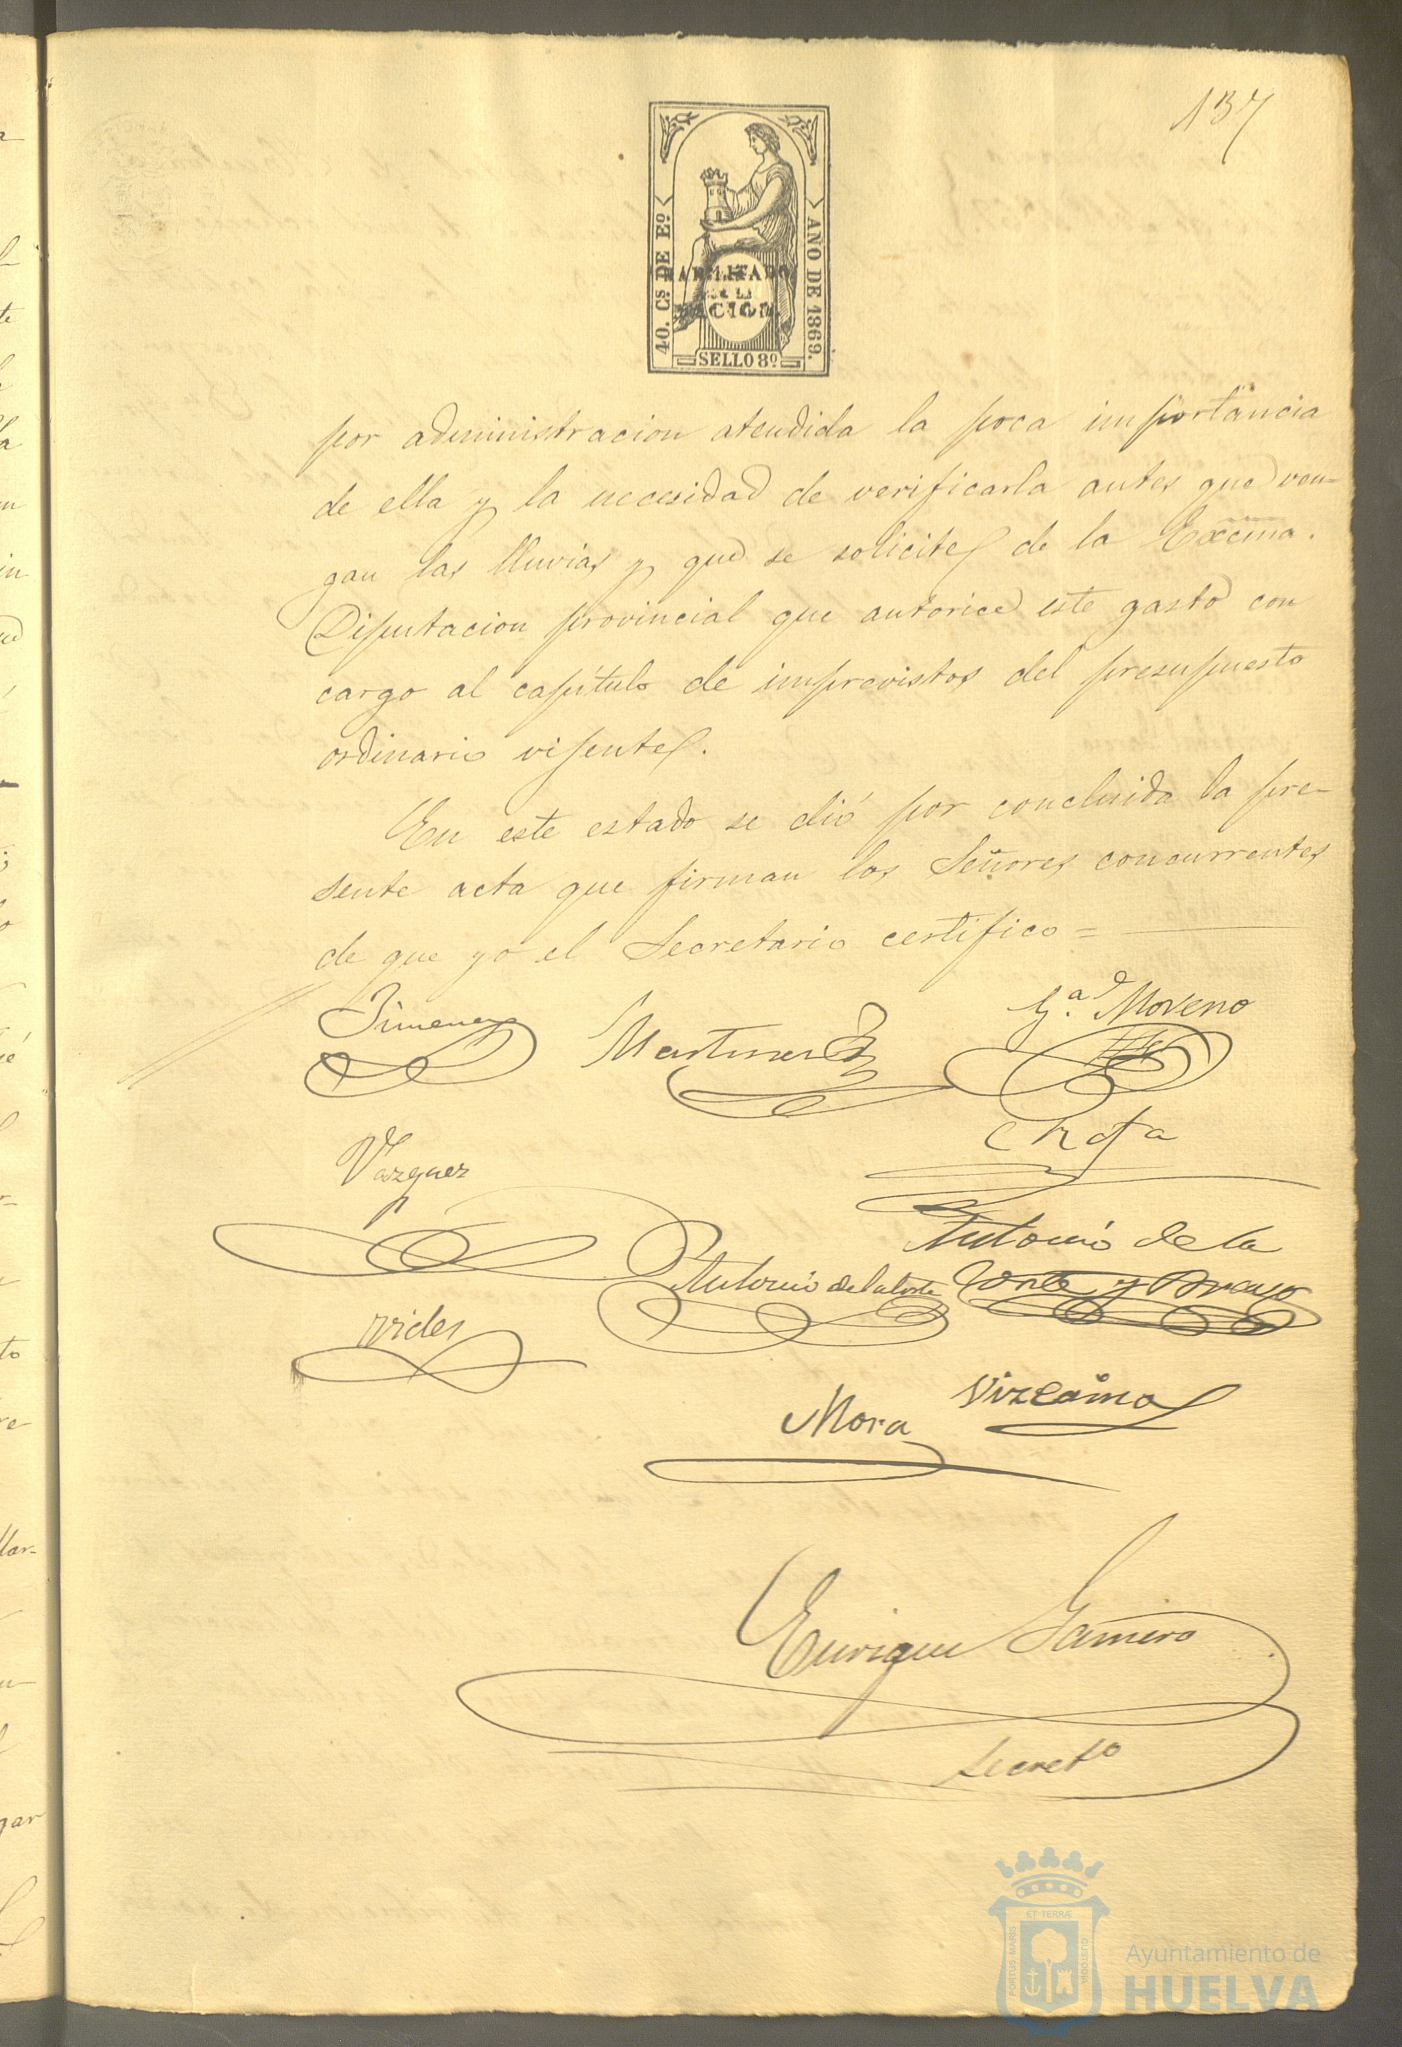 137
40. Cs. DE Eo.
AÑO DE 1869.
HABILITADO
POR LA
NACION.
SELLO 8º
por administracion atendida la poca importancia
de ella y la necesidad de verificarla antes que ven-
gan las lluvias y que se solicite de la Excma.
Diputacion provincial que autorice este gasto con
cargo al capítulo de imprevistos del presupuesto
ordinario vigente.
En este estado se dió por concluida la pre-
sente acta que firman los Señores concurrentes
de que yo el Secretario certifico =
Jimenez
Martinez
Gª. Moreno
Vazquez
Antonio de la
Antonio de la Corte
Corte y Bravo
Vides
Vizcaino
Mora
Enrique Gamero
Secretº
PORTUS MARIS
ET TERRÆ
CUSTODIA
Ayuntamiento de
HUELVA